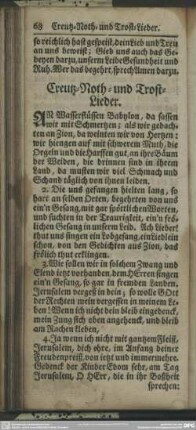 68 Creutz-Noth- und Trost-Lieder.
so reichlich hast gespeist, dein Lieb und Treu
an uns beweist; Gieb uns auch das Ge-
beyen darzu, unserm Leibe Gesundheit und
Ruh. Wer das begehrt, sprech Amen darzu.
Creutz-Noth- und Trost-
Lieder.
AN Wasserflüssen Babylon, da sassen
wir mit Schmertzen; als wir gedach-
ten an Zion, da weinten wir von Hertzen;
wir hiengen auf mit schwerem Muth, die
Orgeln und die Harffen gut, an ihre Bäum
der Weiden, die drinnen sind in ihrem
Land, da musten wir viel Schmach und
Schand täglich von ihnen leiden.
2. Die uns gefangen hielten lang, so
hart an selben Orten, begehrten von uns
ein'n Gesang, mit gar spöttlichen Worten,
und suchten in der Traurigkeit, ein'n frö-
lichen Gesang in unserm Leid. Ach lieber!
thut uns singen ein Lobgesang, ein Liedlein
schon, von den Gedichten aus Zion, das
frölich thut erklingen.
3. Wie sollen wir in solchem Zwang und
Elend jetzt vorhanden, dem HErren singen
ein'n Gesang, so gar in fremden Landen.
Jerusalem vergeß ich dein; so wolle GOtt
der Rechten mein vergessen in meinem Le-
ben! Wenn ich nicht dein bleib eingedenck,
mein Zung sich oben angehenck, und bleib
am Rachen kleben.
4. Ja wenn ich nicht mit gantzem Fleiß,
Jerusalem, dich ehre, im Anfang deiner
Freudenpreiß, von jetzt und immermehre.
Gedenck der Kinder Edom sehr, am Tag
Jerusalem, O HErr, die in ihr Boßheit
sprechen: